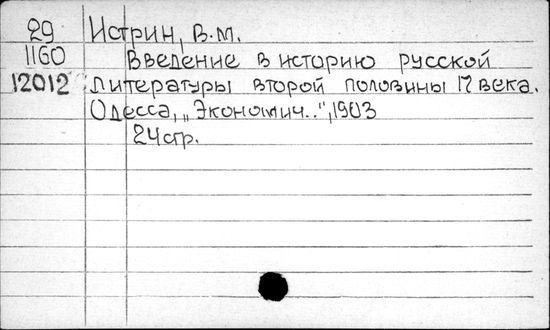 29 Истрин, В.М.
1160 Введение в историю русской
12012 литературы второй половины 17 века.
Одесса, „Экономич..", 1903
24 стр.